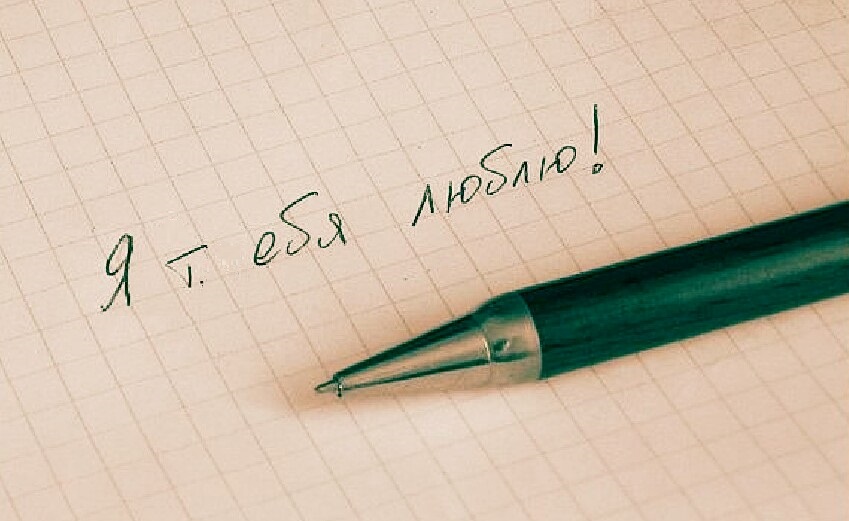 Я т. ебя люблю!